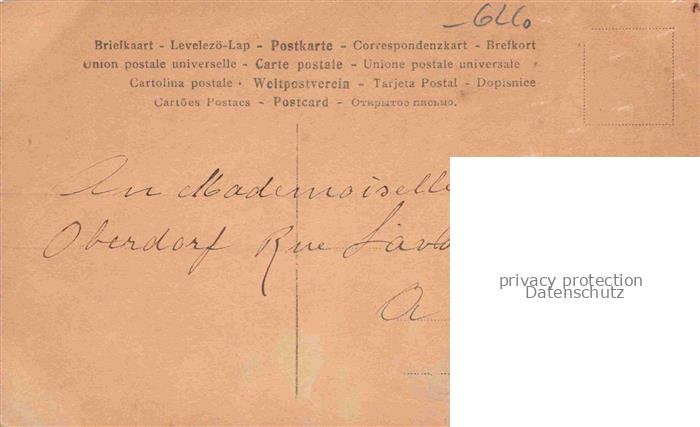 -626.
Briefkaart - Levelezö-Lap - Postkarte - Correspondenzkart - Brefkort
Union postale universelle - Carte postale - Unione postale universale
Cartolina postale - Weltpostverein - Tarjeta Postal - Dopisnice
Cartões Postaes - Postcard - Открытое письмо.
An Mademoiselle
Oberdorf Rue
A
privacy protection
Datenschutz